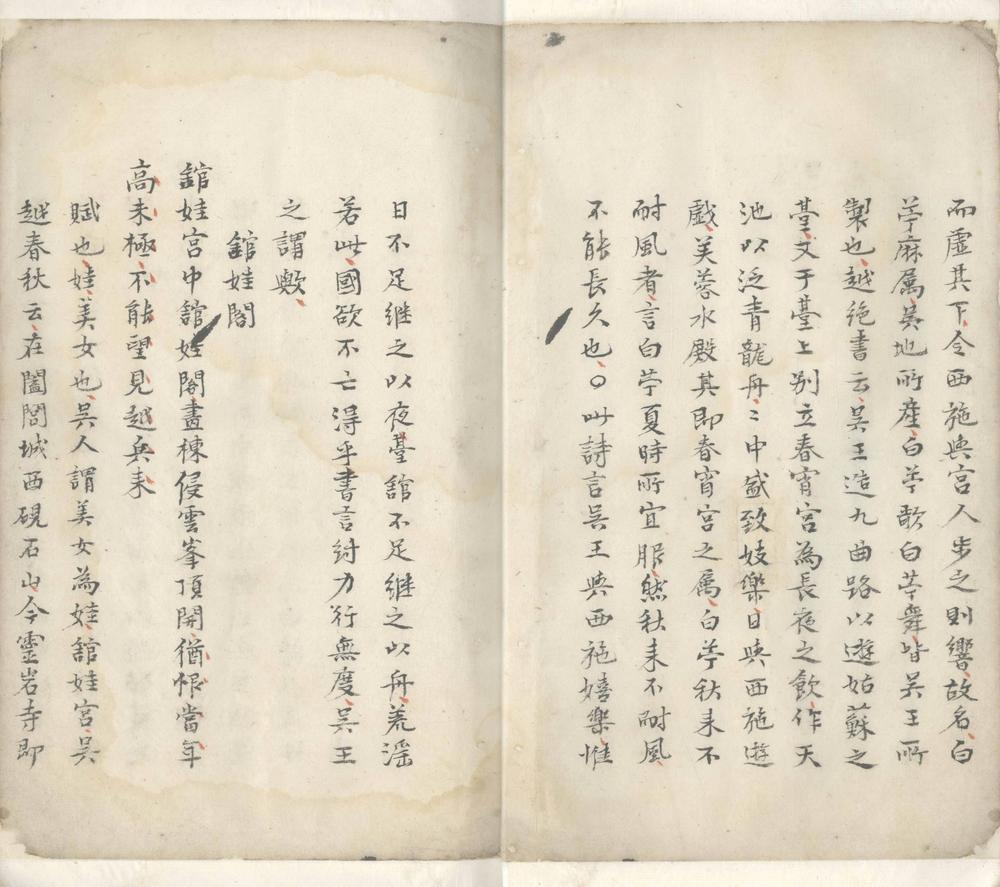 而虛其下令西施與宮人步之則響故名白
苧麻属吳地所產白苧歌白苧舞皆吳王所
製也越絶書云吳王造九曲路以遊姑蘇之
䑓又于䑓上别立春宵宮為長夜之飲作天
池以泛青龍舟〻中盛致妓樂日與西施遊
戲芙蓉水殿其即春宵宮之属白苧秋來不
耐風者言白苧夏時所宜服然秋来不耐風
不能長久也○此詩言吳王與西施嬉樂惟
日不足継之以夜䑓舘不足継之以舟荒滛
若此國欲不亡得乎書言紂力行無度吳王
之謂歟
舘娃閣
舘娃宮中舘娃閣畫棟侵雲峯頂開猶恨當年
高未極不能望見越兵来
賦也娃美女也吳人謂美女為娃舘娃宮吳
越春秋云在闔閭城西硯石山今靈岩寺即